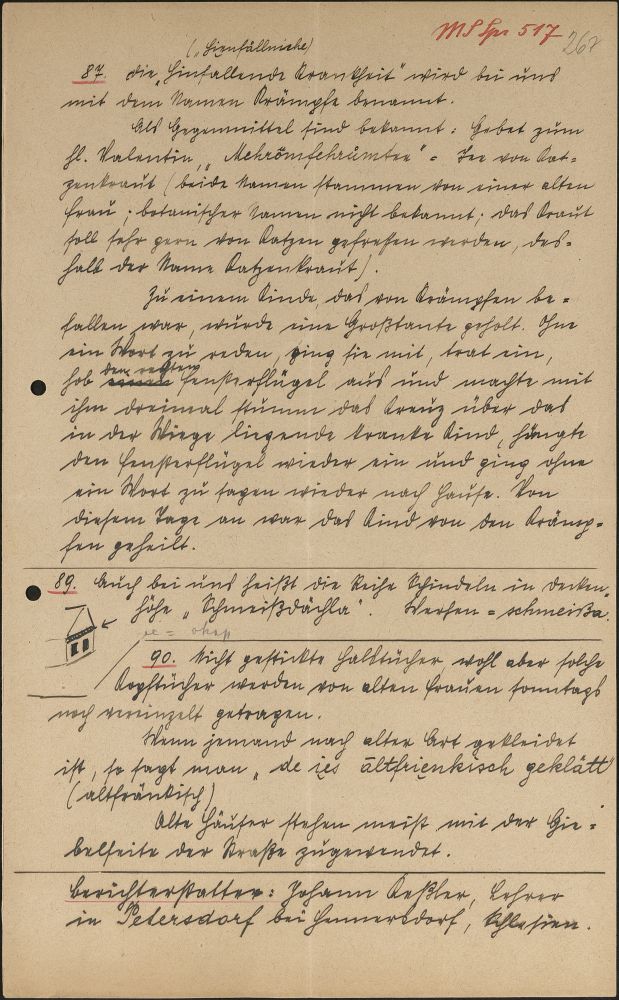 MS Spr 517 267
(„Hienfällniche)
87. die „Hinfallende Krankheit" wird bei uns
mit dem Namen Krämpfe benannt.
Als Gegenmittel sind bekannt: Gebet zum
hl. Valentin, = Tee von Kat=
zenkraut (beide Namen stammen von einer alten
Frau; botanischer Namen nicht bekannt; das Kraut
soll sehr gern von Katzen gefressen werden, des=
halb der Name Katzenkraut).
Zu einem Kinde, das von Krämpfen be=
fallen war, wurde eine Großtante geholt. Ohne
ein Wort zu reden, ging sie mit, trat ein,
hob den rechten Fensterflügel aus und machte mit
ihm dreimal stumm das Kreuz über das
in der Wiege liegende kranke Kind, hängte
den Fensterflügel wieder ein und ging ohne
ein Wort zu sagen wieder nach Hause. Von
diesem Tage an war das Kind von den Krämp=
fen geheilt.
89. Auch bei uns heißt die Reihe Schindeln in Decken=
höhe „Schmeißdächla". Werfen = schmeißa.
90. Nicht gestickte Halstücher, wohl aber solche
Kopftücher werden von alten Frauen sonntags
noch vereinzelt getragen.
Wenn jemand nach alter Art gekleidet
ist, so sagt man „de ies altfrienkisch geklätt"
(altfränkisch)
Alte Häuser stehen meist mit der Gie=
belseite der Straße zugewendet.
Berichterstatter: Johann Keßler, Lehrer
in Petersdorf bei Hennersdorf, Schlesien.